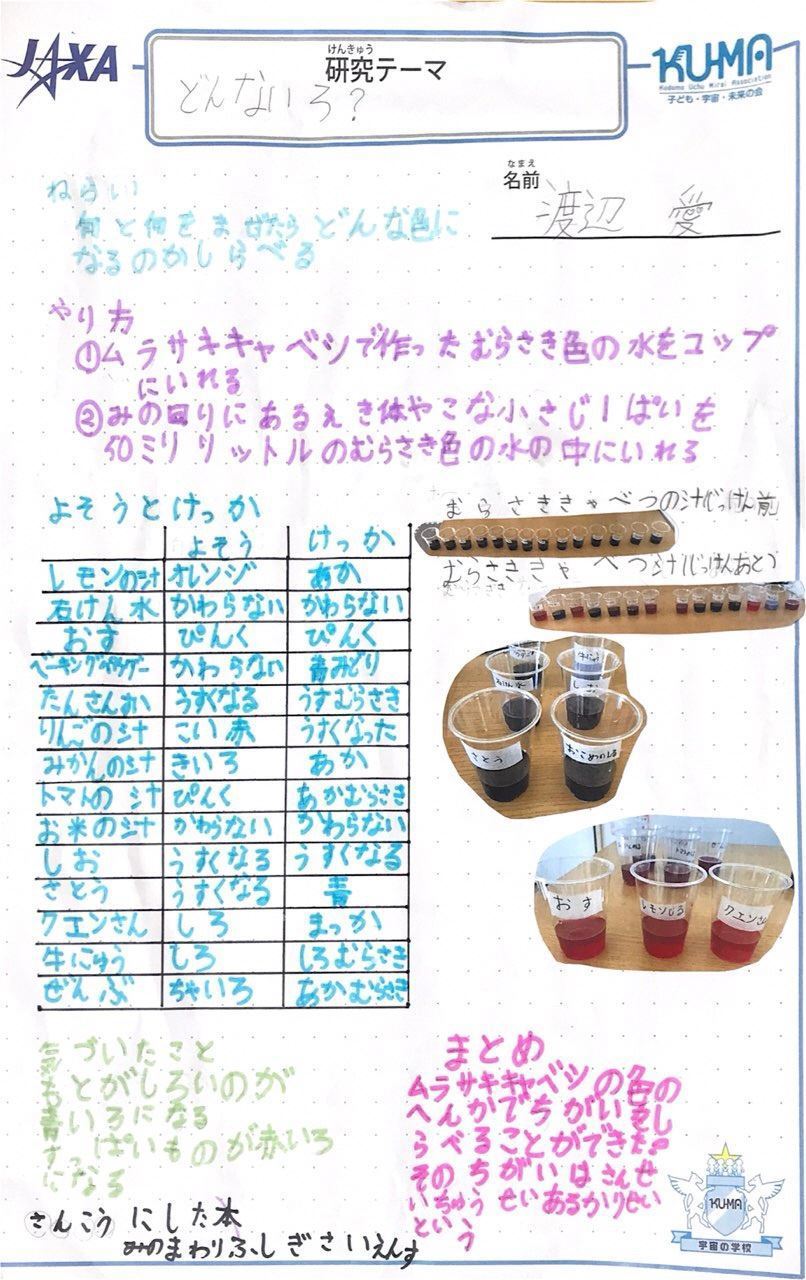 JAXA
けんきゅう
研究テーマ
どんないろ?
KU-MA
Kodomo Uchu Mirai Association
子ども・宇宙・未来の会
なまえ
名前
渡辺 愛
ねらい
何と何をまぜたらどんな色に
なるのかしらべる
やり方
①ムラサキキャベツで作ったむらさき色の水をコップ
にいれる
②みの回りにあるえき体やこな小さじ1ぱいを
50ミリリットルのむらさき色の水の中にいれる
よそうとけっか
よそう けっか
レモンの汁 オレンジ あか
石けん水 かわらない かわらない
おす ぴんく ぴんく
ベーキングパウダー かわらない 青みどり
たんさんすい うすくなる うすむらさき
りんごの汁 こい赤 うすくなった
みかんの汁 きいろ あか
トマトの汁 ぴんく あかむらさき
お米の汁 かわらない かわらない
しお うすくなる うすくなる
さとう うすくなる 青
クエンさん しろ まっか
牛にゅう しろ しろむらさき
ぜんぶ ちゃいろ あかむらさき
むらさききゃべつの汁じっけん前
むらさききゃべつ汁じっけんあと
さとう
おこめのしる
おす
レモンじる
クエンさん
気づいたこと
もとがしろいのが
青いろになる
すっぱいものが赤いろ
になる
まとめ
ムラサキキャベツの色の
へんかでちがいをし
らべることができた。
そのちがいはさんせ
いちゅうせいあるかりせい
という
さんこうにした本
みのまわりふしぎさいえんす
KU-MA
宇宙の学校